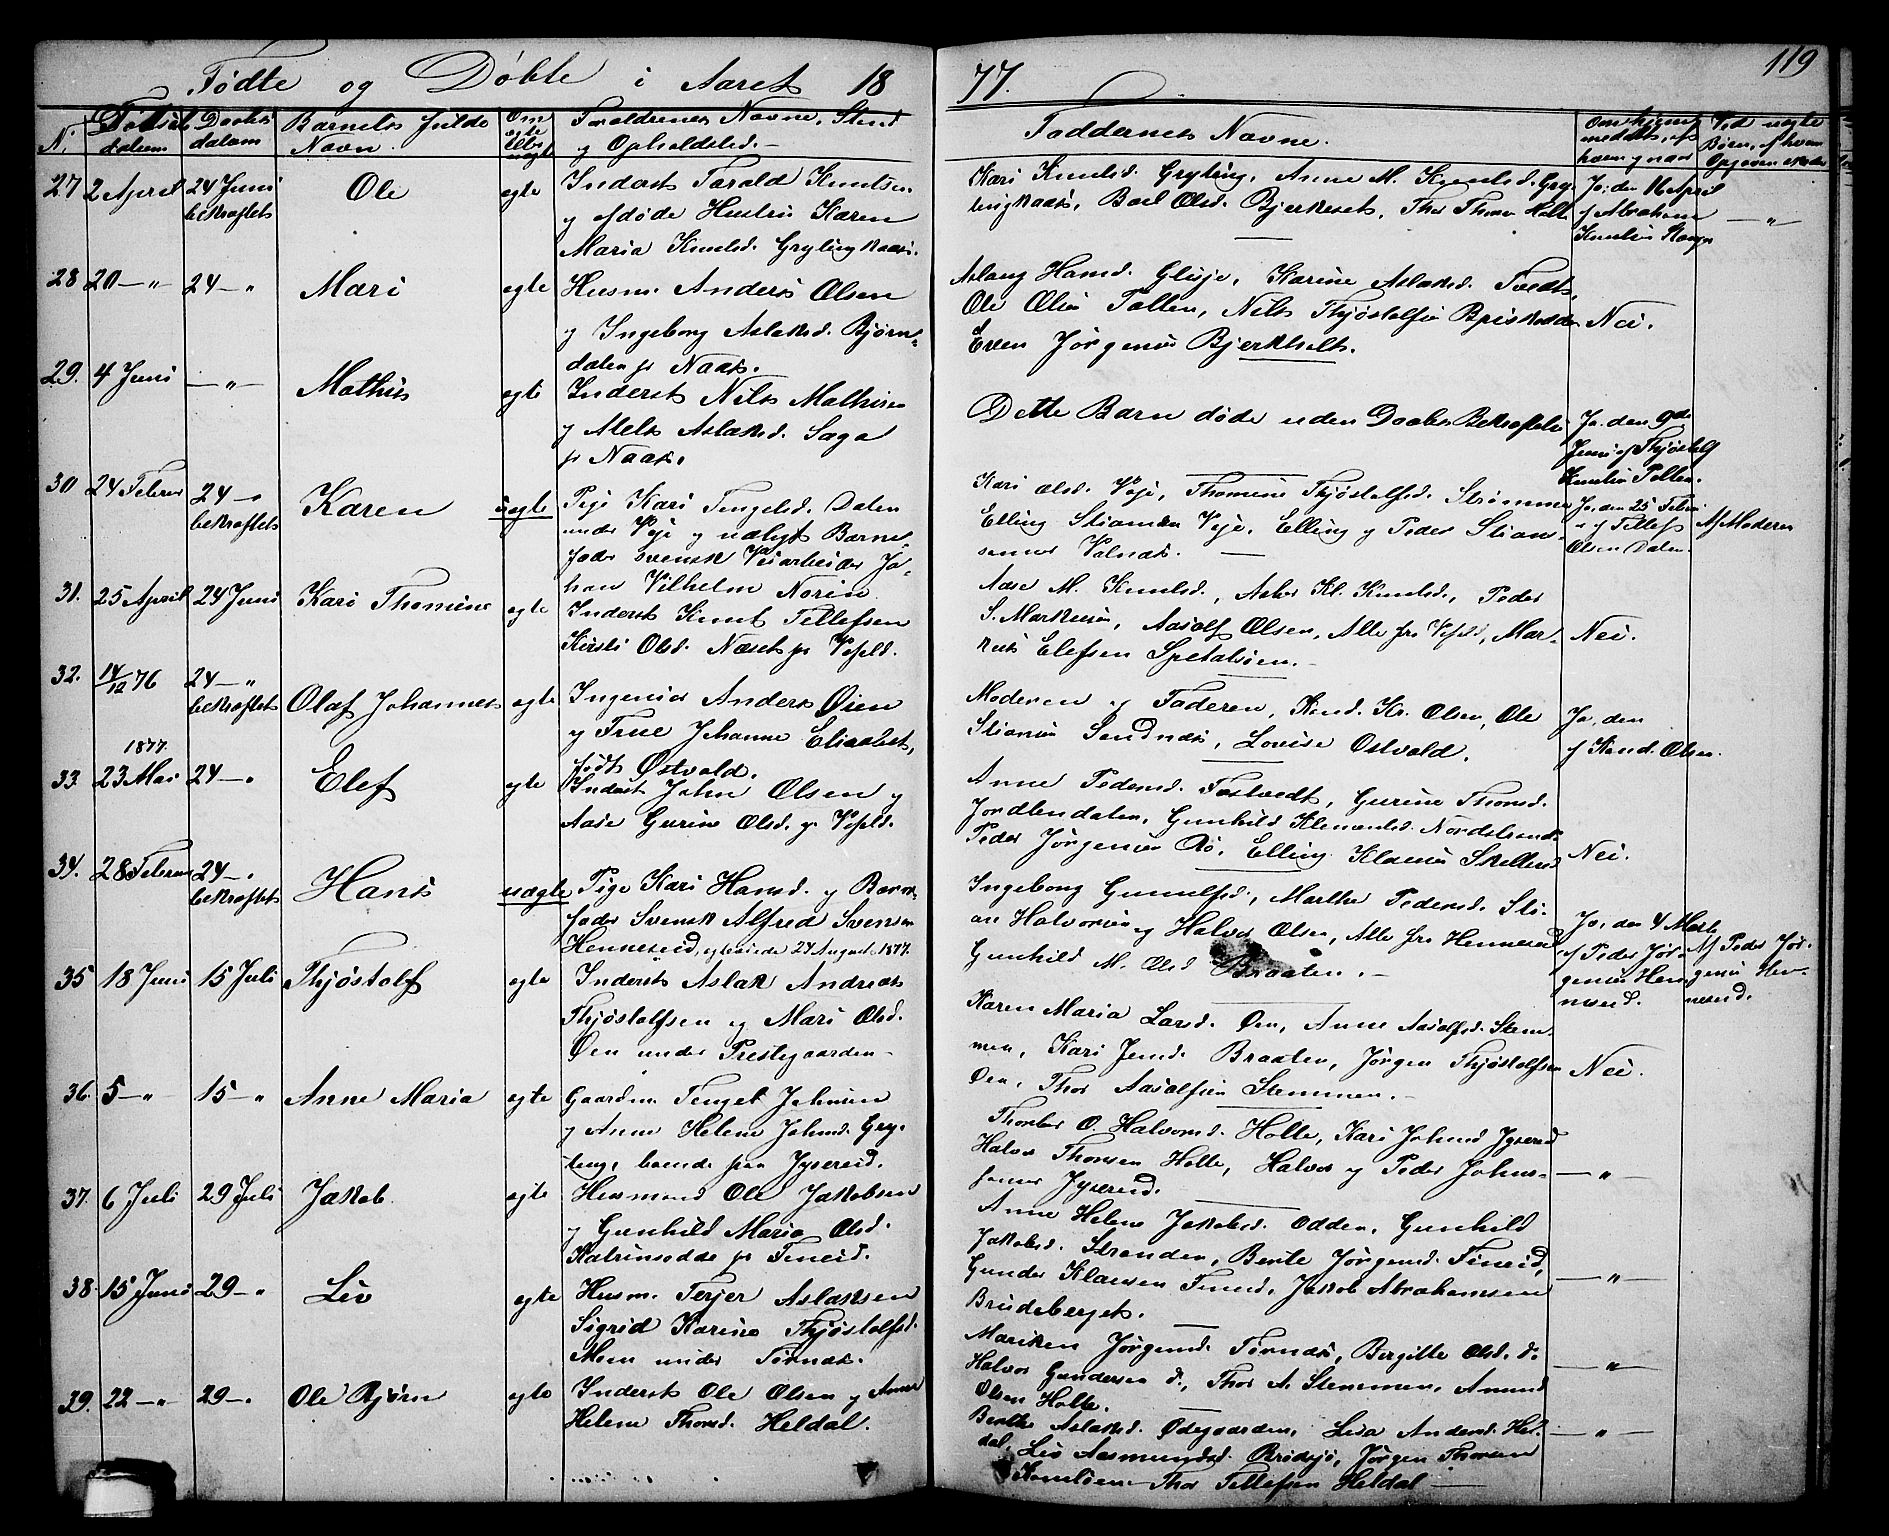 Fødte og Døbte i Aaret 1877.
119
N. Fødsels datum Daabs datum Barnets fulde Navn. Om egte eller uegte Forældrenes Navne, Stand og Opholdsted. Faddernes Navne.
27 2 April 24 Juni bekræftet Ole egte Inderst Tarald Knutsen
y afdøde Hustru Karen
Maria Knutsd. Gryting
Kari Knutsd. Gryting, Anne M. Knutsd. Gry-
Ole Olsd. Bjerkeset, Thor Thorsen Holte
Ja, den 16 April
af Abraham
Knutsen
28 20 — " 24 — " Mari egte Husm. Anders Olsen
y Ingeborg Aslaksd. Bjørn-
dalen p. Naas.
Aslaug Hansd. Glisje, Karine Aslaksd. Tvedt,
Ole Olsen Tollen, Nils Thjøstolfsen
Even Jørgensen Bjerkholt.
Nei.
29. 4 Juni — " — Mathis egte Inderst Nils Mathisen
y Aslaksd. Saga
p. Naas.
Dette Barn døde uden Daabs Bekræftelse
Ja, den 9de
Juni af Thjøstolf
Knutsen Tollen.
30 24 Februar 24 — " bekræftet Karen uegte Pige Kari Tengelsd. Dalen
under Veje y udlagt Barne-
fader svensk Veiarbeider Jo-
han Vilhelm Norin.
Kari Olsd. Veje, Thomine Thjøstolfsd. Strømmen
Elling Stiansen Veje, Elling y Peder Stian-
sønner Valnæs.
Ja, den 25 Febru
af Tellef
Olsen Dalen.
Af Moderen
31. 25 April 24 Juni Kari Thomine egte Inderst Knut Tellefsen
Kirsti Olsd. Næset p. Vefald.
Aase M. Knutsd., Knutsd., Peder
S. Markusen, Aasolf Olsen, Alle fra Vefald, Mar-
kus Elefsen Spetalsien.
Nei.
32. 14/12 76 24 — " bekræftet Olaf Johannes egte Ingeniør Anders Øien
y Frue Johanne Elisabet,
født Østvold.
Moderen og Faderen, Kand. Kr. Olsen, Ole
Stiansen Sandnæs, Lovise Ostvald.
Ja, den
af Kand. Olsen.
1877.
33 23 Mai 24 — " Elef egte Inderst John Olsen y
Aase Gurine Olsd. p. Vefald.
Anne Pedersd. Fostvedt, Gurine Thorsd.
Jordbendalen, Gunhild Klemetsd. Nordstrand
Peder Jørgensen Rø, Elling Klausen
Nei.
34. 28 Februar 24 — " bekræftet Hans uegte Pige Kari Hansd. y Barne-
fader Svensk Alfred Svensen
Henneseid, egteviede 24 August 1877.
Ingeborg Gunulfsd., Marthe Pedersd. Sti-
an Halvorsen y Halvor Olsen, Alle fra Henneseid
Gunhild M. Olsd. Braaten.
Ja, den 4 Marts
af Peder Jør-
gensen Hen-
neseid.
Af Peder Jør-
gensen Hen-
neseid.
35 18 Juni 15 Juli Thjøstolf egte Inderst Aslak Andreas
Thjøstolfsen og Mari Olsd.
Øen under Prestegaarden
Karen Maria Larsd. Øen, Anne Aasolfsd. Stem-
men, Kari Jensd. Braaten, Jørgen Thjøstolfsen
Øen, Thor Aasolfsen Stemmen.
Nei.
36. 5 — " 15 — " Anne Maria egte Gaardm. Tengel Johnsen
y Anne Helene Johnsd. Gry-
ting, boende paa Jysereid.
Thorbor O. Halvorsd. Holte, Kari Johnsd. Jysereid
Halvor Thorsen Holte, Halvor y Peder Johns-
sønner Jysereid.
— " —
37. 6 Juli 29 Juli Jakob egte Husmand Ole Jakobsen
y Gunhild Maria Olsd.
Katrinsodde p. Fineid.
Anne Helene Jakobsd. Odden, Gunhild
Jakobsd. Stranden, Bente Jørgensd. Fineid,
Gunder Klausen Fineid, Jakob Abrahamsen
Brudeberget.
— " —
38. 15 Juni 29 — " Liv egte Husm. Terjer Aslaksen
Sigrid Karine Thjøstolfsd.
Moen under Tornæs.
Mariken Jørgensd. Tornæs, Bergitte Olsd. d.
Halvor Gundersen d., Thor A. Stemmen, Amund
Olsen Holte.
— " —
39. 22 — " 29 — " Ole Bjørn egte Inderst Ole Olsen y Anne
Helene Thorsd. Heldal.
Berthe Aslaksd. Ødegaarden, Lisa Andersd. Hel-
dal, Liv Aasmundsd. Brødsjø, Jørgen Thorsen
Thor Tellefsen Heldal
— " —